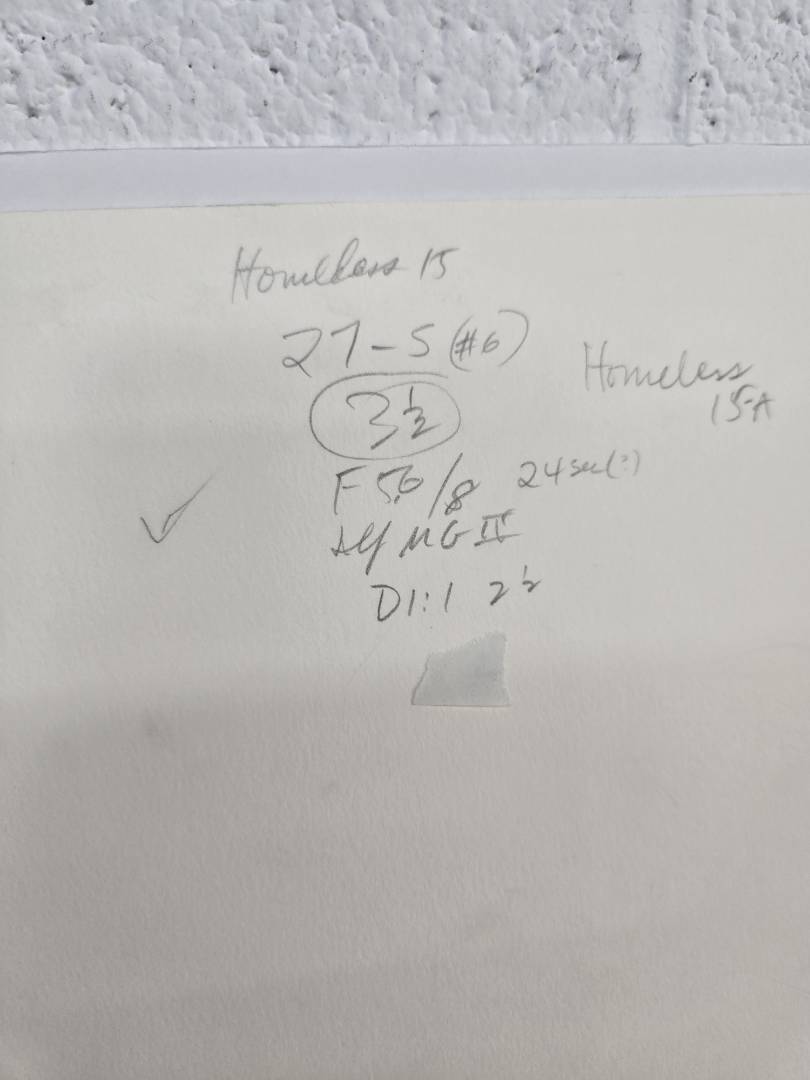 Homeless 15
27-5 (#6)
Homeless
15-A
3½
F 5.6/8 24 sec(?)
MG IV
D1:1 2½